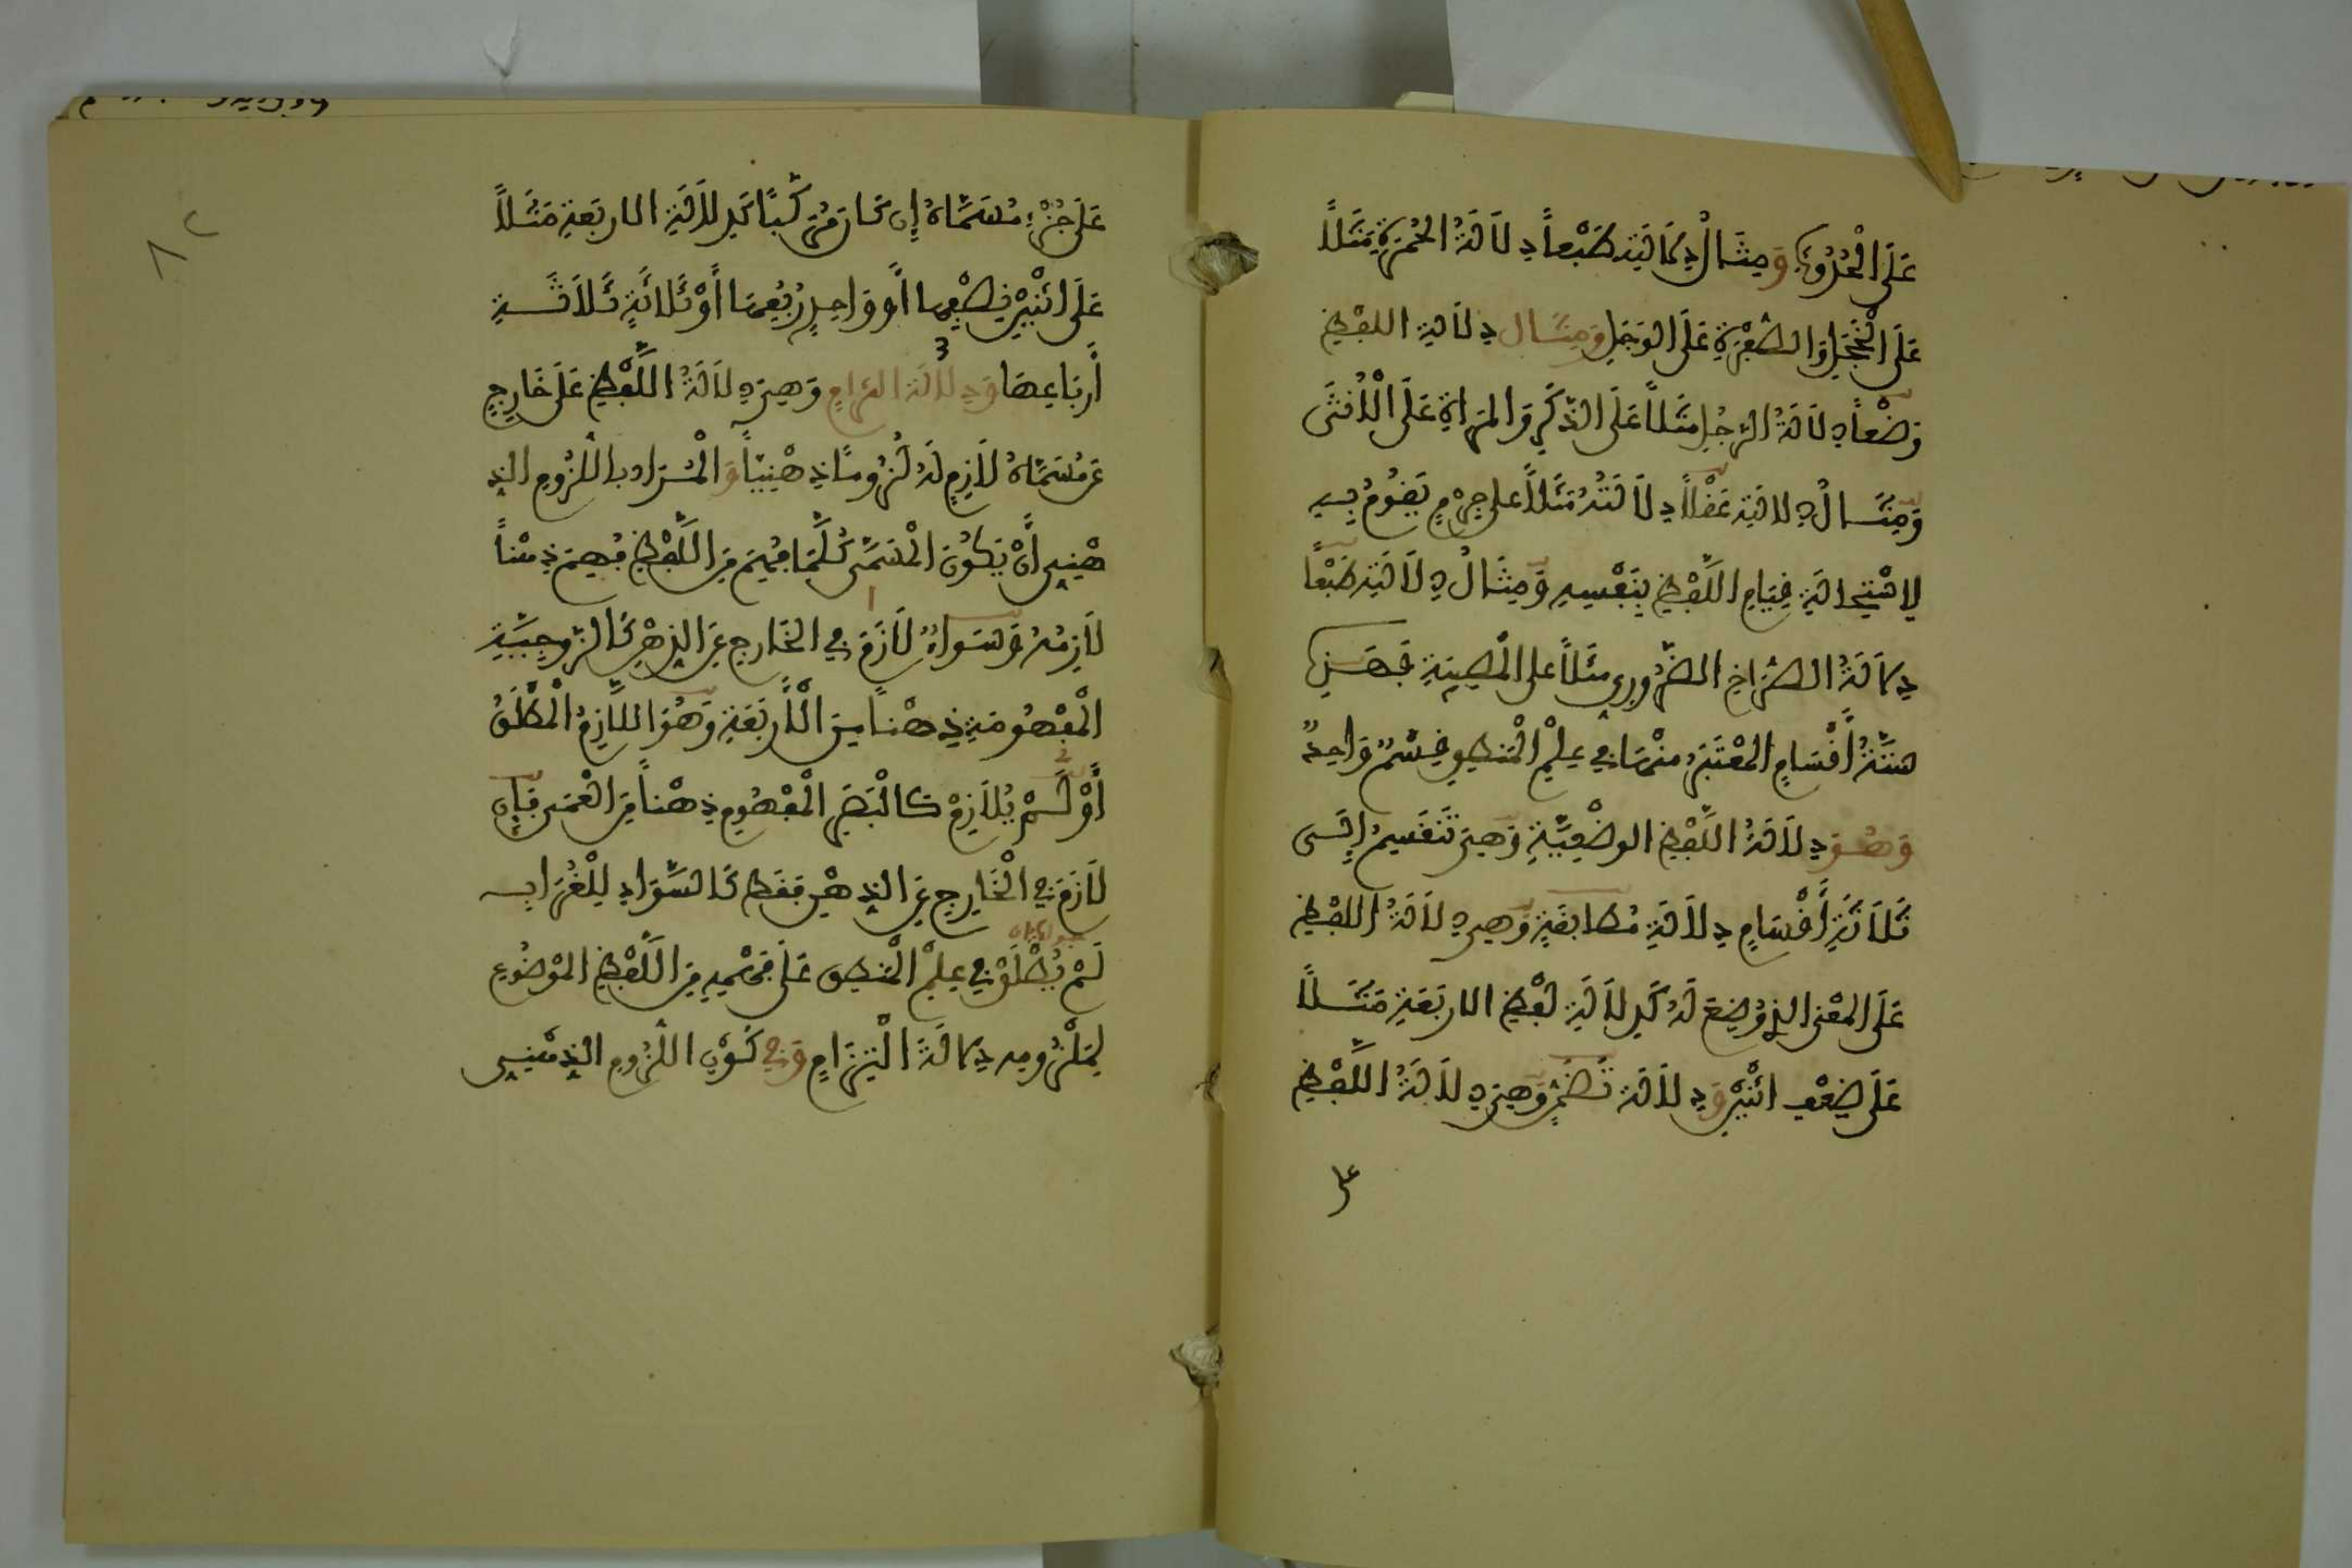 عَلَى الْحُدُوثِ وَمِثَالُ دِلَالَتِهِ طَبْعاً دِلَالَةُ الْحُمْرَةِ مَثَلاً
عَلَى الْخَجَلِ وَالصُّفْرَةِ عَلَى الْوَجَلِ وَمِثَال دِلَالَةِ اللفْظِ
وَضْعاً دِلَالَةُ الرَّجُلِ مَثَلاً عَلَى الذَّكَرِ وَالمَرْأَةِ عَلَى الْأُنْثَى
وَمِثَالُ دِلَالَتِهِ عَقْلاً دِلَالَتُهُ مَثَلاً على جِرْمٍ يَقُومُ بِهِ
لِاسْتِحَالَةِ قِيَامِ اللَّفْظِ بِنَفْسِهِ وَمِثَالُ دِلَالَتِهِ طَبْعاً
دِلَالَةُ الصُّرَاخِ الضَّرُورِي مَثَلاً على الْمُصِيبَةِ فَهَذِهِ
سِتَّةُ أَقْسَامٍ المُعْتَبَرُ مِنْهَا فِي عِلْمِ الْمَنْطِقِ قِسْمٌ وَاحِدٌ
وَهُوَ دِلَالَةُ اللَّفْظِ الوضْعِيَّةِ وَهِيَ تَنْقَسِمُ إِلَى
ثَلَاثَةِ أَقْسَامٍ دِلَالَةِ مُطَابَقَةٍ وَهِيَ دِلَالَةُ اللفْظِ
عَلَى المَعْنَى الذِي وُضِعَ لَهُ كَدِلَالَةِ لَفْظِ الاربَعَةِ مَثَلاً
عَلَى ضِعْفِ اثْنَيْنِ وَدِلَالَة تَضَمُّنٍ وَهِيَ دِلَالَةُ اللَّفْظِ
عل
عَلَى جُزْءِ مُسَمَّاهُ إِن كَانَ مُرَكَّبًا كَدِلَالَةِ الاربَعَةِ مَثَلاً
عَلَى اثْنَيْنِ نِصْفِهَا أَو وَاحِدٍ رُبُعِهَا أَوْ ثَلَاثَةٍ ثَلَاثَةِ
أَرْبَاعِهَا وَدِلَالَة الْتِزَامٍ وَهِيَ دِلَالَةُ اللَّفْظِ عَلَى خَارِجٍ
عَن مُسَمَّاهُ لَازِمٍ لَهُ لُزُومًا ذِهْنِيّاً وَالْمُرَاد باللُّزُومِ الذِ
هْنِي أَنْ يَكُونَ الْمُسَمَّى كُلَّمَا فُهِمَ مِنَ اللَّفْظِ فُهِمَ ذِهْناً
لَازِمُهُ وَسَوَاءٌ لَازَمَ فِي الخَارِجِ عَنِ الذِهْنِ كَالزَّوْجِيَّةِ
الْمَفْهُومَةِ ذِهْناً مِنَ الْأَرْبَعَةِ وَهُوَ اللَّازِمُ الْمُطْلَقُ
أَوْ لَمْ يُلَازِمْ كَالْبَصَرِ الْمَفْهُومِ ذِهْناً مِنَ الْعَمَى فَإِن
لَازَمَ فِي الْخَارِجِ عَنِ الذِهْنِ فَقَط كَالسَّوَادِ لِلْغُرَابِ
لَمْ يُطْلَقْ فِي عِلْمِ الْمَنْطِقِ عَلَى فَهْمِهِ مِنَ اللَّفْظِ الْمَوْضُوعِ
لِمَلْزُومِهِ دِلَالَةُ الْتِزَامٍ وَفِي كَوْنِ اللُّزُومِ الذِهْنِي